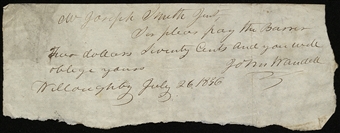 Mr Joseph Smith Junr
Sir please pay the Barror
Two dollars Seventy Cents and you will
oblige yours John Wandell
Willoughby July 26 1836